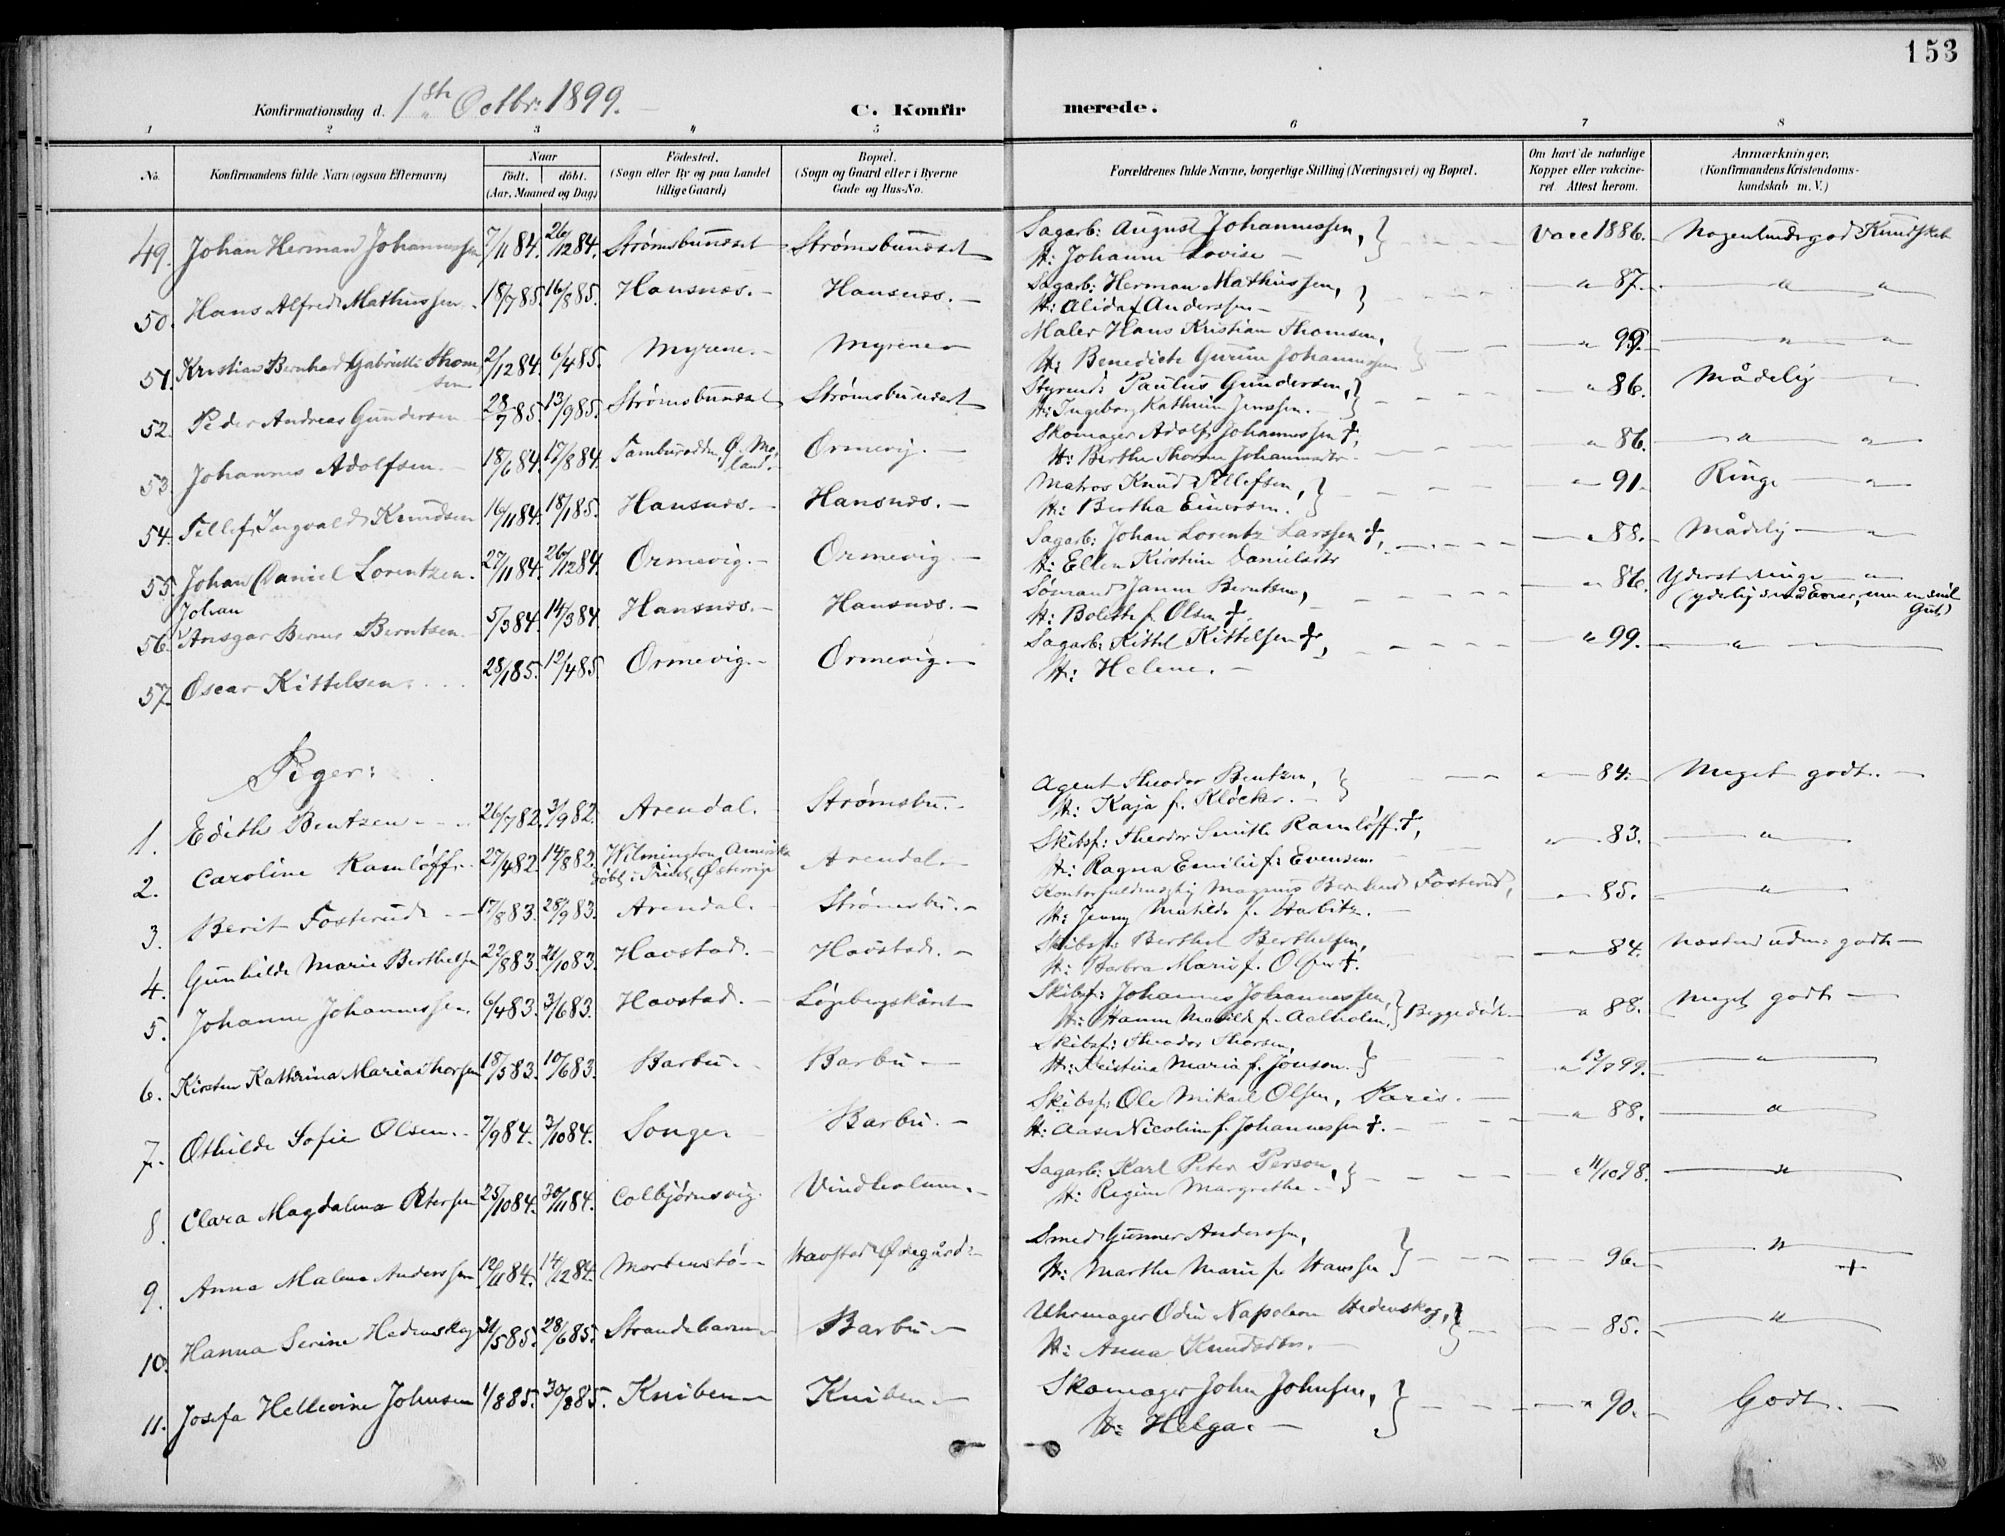 153
Konfirmationsdag d. 1ste Octbr: 1899.
C. Konfirmerede.
1 2 3 4 5 6 7 8
No. Konfirmandens fulde Navn (ogsaa Efternavn) Naar født. døbt. (Aar, Maaned og Dag) Fødested. (Sogn eller By og paa Landet tillige Gaard) Bopæl. (Sogn og Gaard eller i Byerne Gade og Hus-No. Forældrenes fulde Navne, borgerlige Stilling (Næringsvei) og Bopæl. Om havt de naturlige Kopper eller vakcineret Attest herom. Anmærkninger. (Konfirmandens Kristendomskundskab m. V.)
49. Johan Herman Johannessen 7/11 84. 26/12 84. Strømsbuneset Strømsbuneset Sagarb: August Johannessen, Vacc 1886. Nogenlunde god Kundskab
H: Johanne Lovise
50. Hans Alfred Mathissen 18/7 85. 16/8 85. Hansnæs. Hansnæs. Sagarb: Herman Mathissen, " 87. " "
H: Alida f Anderssen
51. Kristian Bernhard Gabrielli Thomsen 2/12 84. 6/4 85. Myrene. Myrene Maler Hans Kristian Thomsen, " 99. " "
H: Benedicte Gurine Johannessen
52. Peder Andreas Gundersen 28/7 85. 13/9 85. Strømsbuneset Strømsbuneset Styrmd: Paulus Gundersen, " 86. Mådelig
H: Ingeborg Kathrine Jenssen.
53. Johannes Adolfsen. 18/6 84. 17/8 84. Tamburodden, Ø. Moland. Ørmevig. Skomager Adolf Johannessen †, " 86. " "
H: Berthe Thorine Johannesdtr.
54. Tellef Ingvald Knudsen 16/11 84. 18/1 85. Hansnæs. Hansnæs. Matros Knud Tellefsen, " 91. Ringe "
H: Bertha Einersen.
55. Johan Daniel Lorentzen. 27/11 84. 26/12 84. Ørmevig. Ørmevig Sagarb: Johan Lorentz Larssen †, " 88. Mådelig "
H: Ellen Kirstine Danielsdtr
56. Johan Ansgar Berner Berntsen. 5/3 84. 14/3 84. Hansnæs. Hansnæs. Sømand Janne Berntsen, " 86. Yderst ringe "
H: Bolette f. Olsen †.
57. Oscar Kittelsen. 28/1 85. 12/4 85. Ørmevig. Ørmevig. Sagarb: Kittel Kittelsen †, " 99. "
H: Helene.
Piger:
1. Edith Bentzen 26/7 82. 3/9 82. Arendal. Strømsbu. Agent Theodor Bentzen, " 84. Meget godt.
H: Kaja f. Kløcker.
2. Caroline Ramløff. 27/4 82. 14/8 82. Wilmington, Amerika døbt i Triest, Østerrige Arendal. Skibsf: Theodor Smith Ramløff †, " 83. "
H: Ragna Emilie f: Evensen.
3. Berit Fosterud 17/8 83. 28/9 83. Arendal. Strømsbu. Kontorfuldmægtig Magnus Bernhard Fosterud, " 85. "
H: Jenny Matilde f. Harbitz.
4. Gunhilde Marie Berthelsen 22/8 83. 21/10 83. Havstad. Havstad. Skibsf: Berthel Berthelsen, " 84. Næsten udm: godt
H: Barbra Marie f. Olsen †.
5. Johanne Johannessen. 6/4 83. 3/6 83. Havstad. Løgebergskåret Skibsf: Johannes Johannessen, Begge døde " 88. Meget godt
H: Hanne Matilde f. Aalholm,
6. Kirsten Kathrina Maria Thorsen 18/5 83. 10/6 83. Barbu. Barbu Skibsf: Theodor Thorsen, " 13/9 99. "
H: Kristina Maria f. Jonson.
7. Othilde Sofie Olsen. 7/9 84. 3/10 84. Songe. Barbu. Skibsf: Ole Mikael Olsen, Paris. " 88. "
H: Aase Nicoline f. Johannessen †.
8. Clara Magdalena Petersen 25/10 84. 30/11 84. Colbjørnsvig. Vindholmen. Sagarb: Karl Peter Person, " 11/10 98. "
H: Regine Margrethe.
9. Anna Malene Anderssen 12/11 84. 14/12 84. Mortenstø Havstad Ødegård Smed Gunner Anderssen, 96. "
H: Marthe Marie f. Hanssen +
10. Hanna Serine Hedenskog 31/5 85. 28/6 85. Strandebarm Barbu Uhrmager Odin Napoleon Hedenskog, 85. "
H: Anna Knudsdtr.
11. Josefa Hellevine Johnsen 1/8 85. 30/8 85. Kniben Kniben Skomager John Johnsen, " 90. Godt.
H: Helga.